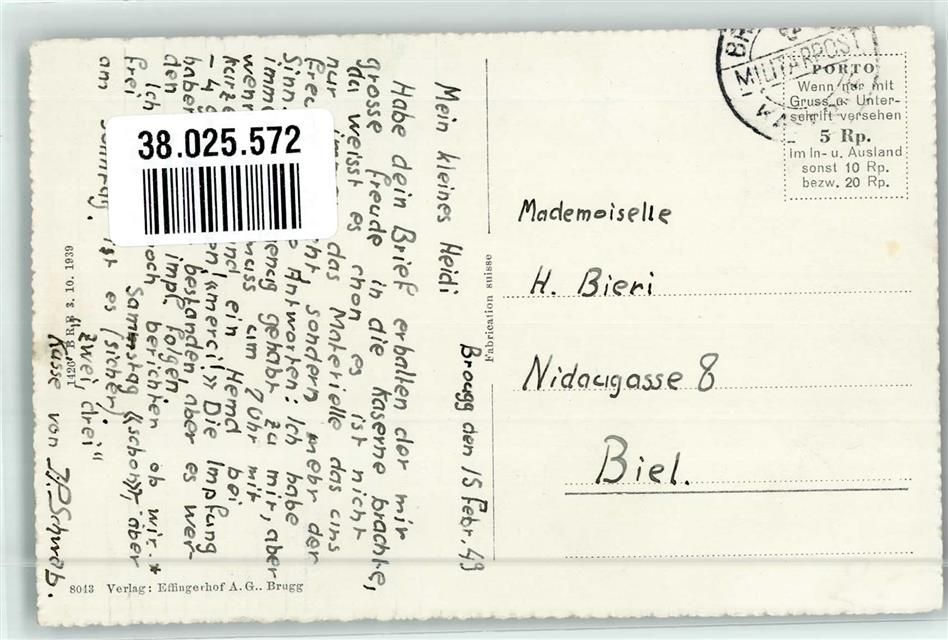 Brougg den 15 Febr. 49
Mein kleines Heidi
Habe dein Brief erhalten der mir
grosse freude in die Kaserne brachte,
du weisst es chon es ist nicht
nur das Materielle das uns
sondern mehr der
Sinn Antworten: Ich habe
imme genug gehabt zu mir, aber
wenn muss um 7 Uhr mit
kurze und ein Hemd bei
- 4 «merci!» Die Impfung
haben bestanden aber es wer-
den impf. folgen
Ich noch berichten ob wir *
frei Samstag «schon», aber
am Sonntag. ist es (sicher)
"zwei, drei"
Küsse von JP Schwab.
38.025.572
1420 B R B 3. 10. 1939
8043 Verlag: Effingerhof A. G.. Brugg
Fabrication suisse
MILITÄRPOST
PORTO
Wenn nur mit
Gruss u. Unter-
schrift versehen
5 Rp.
im In- u. Ausland
sonst 10 Rp.
bezw. 20 Rp.
Mademoiselle
H. Bieri
Nidaugasse 8
Biel.